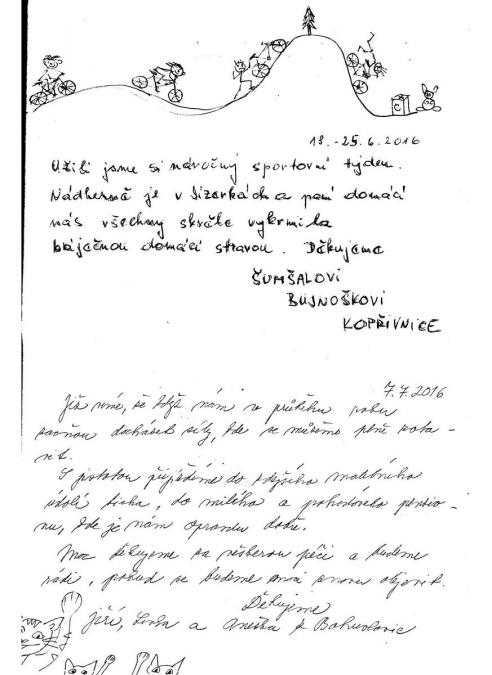 Č
18.-25.6.2016
Užili jsme si náročný sportovní týden.
Nádherně je v Jizerkách a paní domácí
nás všechny skvěle vykrmila
báječnou domácí stravou. Děkujeme
ŠUMŠALOVI
BUJNOŠKOVI
KOPŘIVNICE
7.7.2016
Již víme, že když nám v průběhu roku
začnou docházet síly, kde se můžeme plně zota-
vit.
S jistotou přijedeme do zdejšího malebného
údolí ticha, do milého a pohodového penzio-
nu, kde je nám opravdu dobře.
Moc děkujeme za veškerou péči a budeme
rádi, pokud se budeme moci znovu objevit.
Děkujeme
Jiří, Lenka a Anežka z Bohuslavic